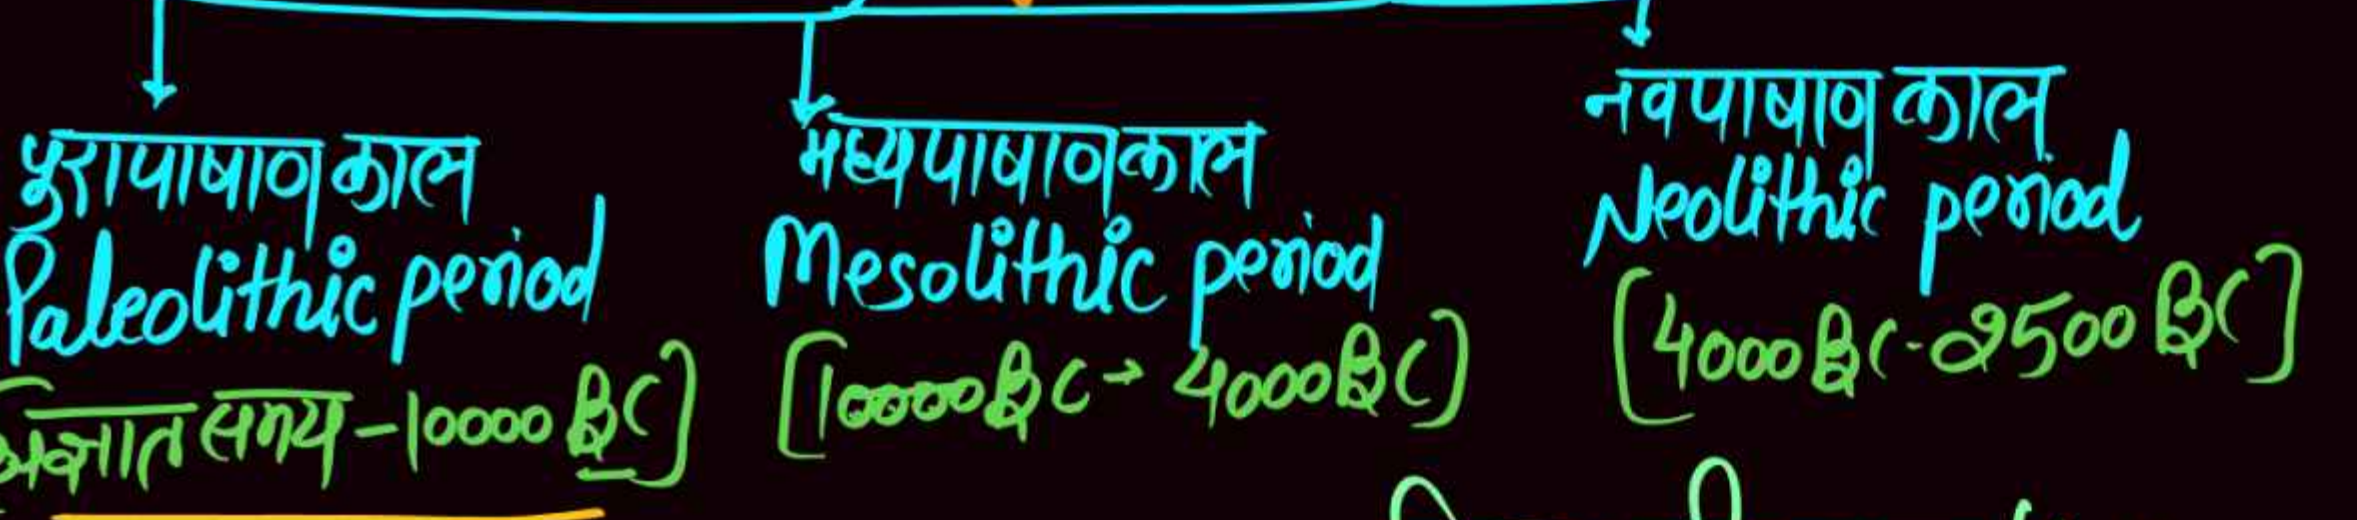 पुरापाषाण काल
Paleolithic period
[अज्ञात समय - 10000 BC]
मध्यपाषाण काल
Mesolithic period
[10000 BC → 4000 BC]
नवपाषाण काल
Neolithic period
[4000 BC - 2500 BC]